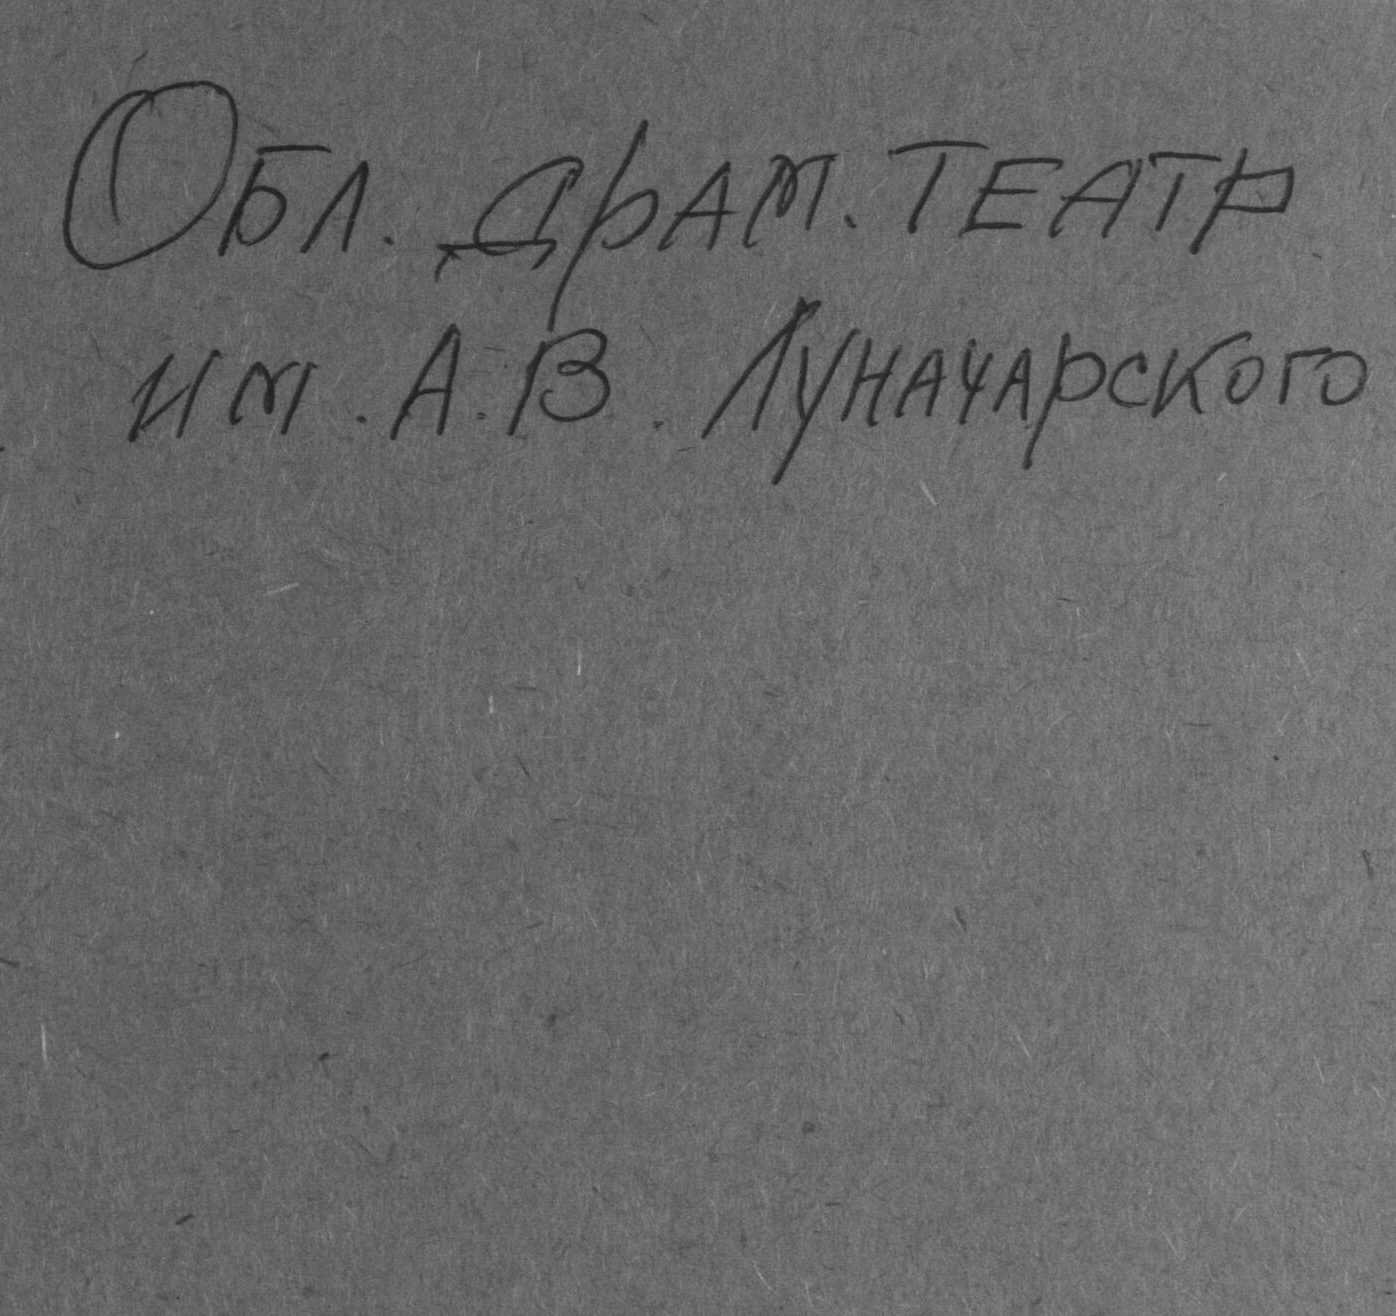 Обл. драм. театр
им. А.В. Луначарского